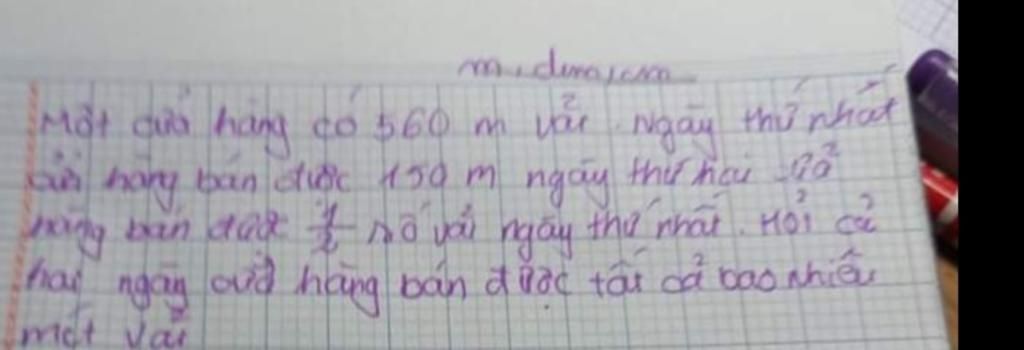 m, dm, cm
Một cửa hàng có 560 m vải. Ngày thứ nhất
cửa hàng bán được 150 m ngày thứ hai cửa
hàng bán được số vải ngày thứ nhất. Hỏi cả
hai ngày cửa hàng bán được tất cả bao nhiêu
mét vải